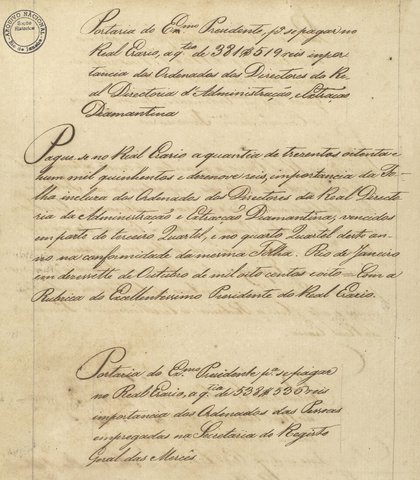 ARQUIVO NACIONAL
Portaria do Exmo Presidente, pa se pagar no
Real Erario, a qtia de 381$519 reis impor
tancia dos Ordenados dos Directores da Re
al Directoria d'Administração, e Extração
Diamantina
Pague se no Real Erario a quantia de trezentos oitenta e
hum mil quinhentos e dezenove reis, importancia da Fo
lha incluza dos Ordenados dos Directores da Real Directo
ria da Administração e Extracção Diamantina, vencidos
em parte do terceiro Quartel, e no quarto Quartel deste an
no na conformidade da mesma Folha. Rio de Janeiro
em dezessette de Outubro de mil oito centos e oito = Com a
Rubrica do Excellentissimo Presidente do Real Erario.
Portaria do Exmo Presidente pa se pagar
no Real Erario, a qtia de 538$535 reis
importancia dos Ordenados das Pessoas
empregadas na Secretaria do Registo
Geral das Mercês